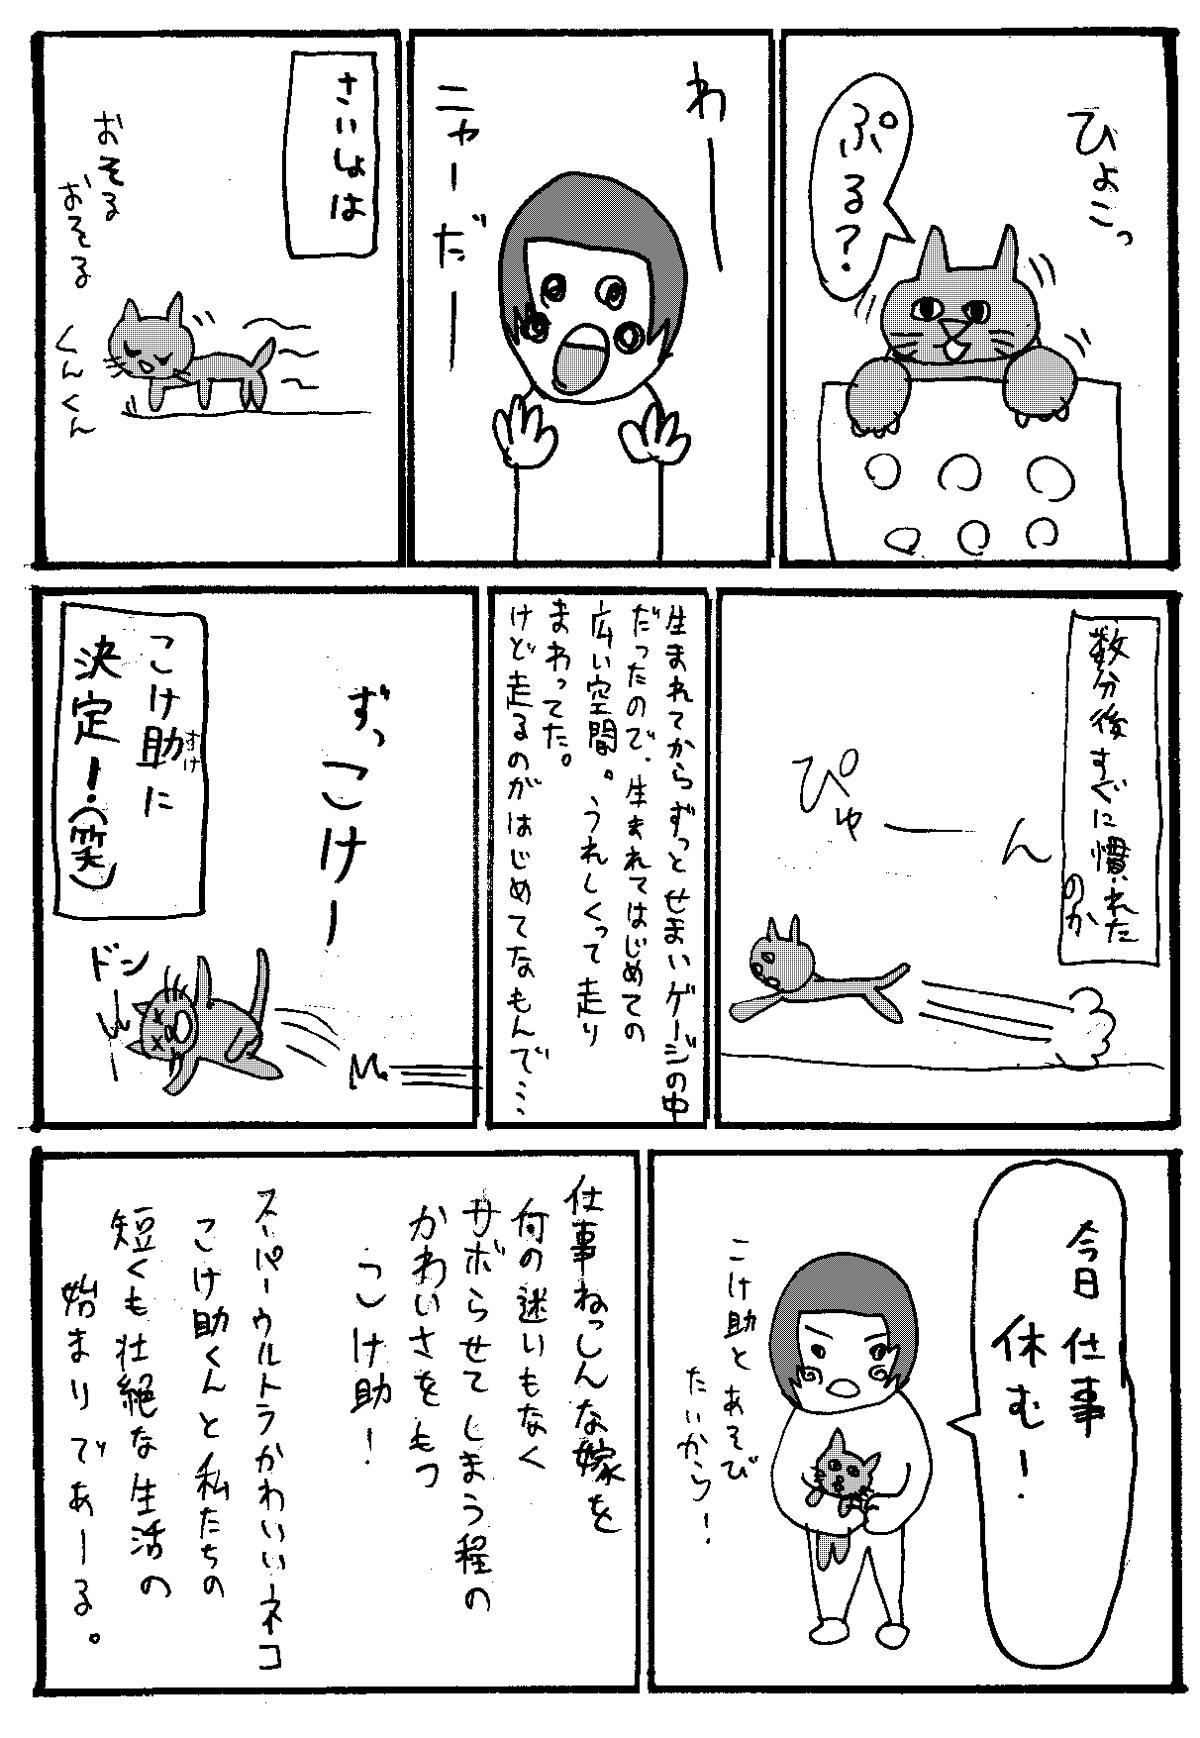 ひょこっ
ぷる？
わー
ニャーだー
さいしょは
おそる
おそる
くんくん
数分後すぐに慣れた
のか
ぴゅーん
生まれてからずっとせまいゲージの中
だったので、生まれてはじめての
広い空間。うれしくって走り
まわってた。
けど走るのがはじめてなもんで…
ずっこけー
ドン
こけ助に
すけ
決定！(笑)
今日仕事
休む！
こけ助とあそび
たいから！
仕事ねっしんな嫁を
何の迷いもなく
サボらせてしまう程の
かわいさをもつ
こけ助！
スーパーウルトラかわいいネコ
こけ助くんと私たちの
短くも壮絶な生活の
始まりであーる。